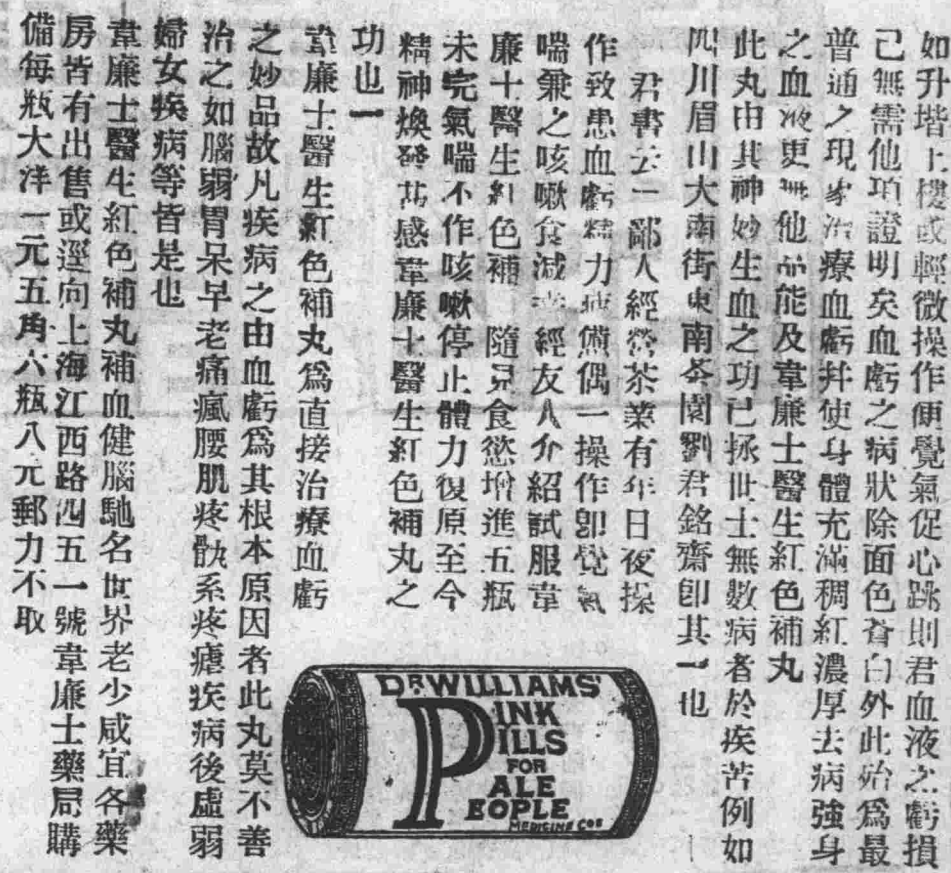 如升堦上樓或輕微操作便覺氣促心跳則君血液之虧損
已無需他項證明矣血虧之病狀除面色蒼白外此殆爲最
普通之現象治療血虧并使身體充滿稠紅濃厚去病強身
之血液更無他品能及韋廉士醫生紅色補丸
此丸由其神妙生血之功已拯世士無數病者於疾苦例如
四川眉山大南街東南茶園劉君銘齋卽其一也
君書云一鄙人經營茶業有年日夜操
作致患血虧精力疲憊偶一操作卽覺氣
喘兼之咳嗽食減 經友人介紹試服韋
廉士醫生紅色補 隨見食慾增進五瓶
未完氣喘不作咳嗽停止體力復原至今
精神煥發 感韋廉士醫生紅色補丸之
功也一
韋廉士醫生紅色補丸爲直接治療血虧
之妙品故凡疾病之由血虧爲其根本原因者此丸莫不善
治之如腦弱胃呆早老痛瘋腰肌疼骩系疼瘧疾病後虛弱
婦女疾病等皆是也
韋廉士醫生紅色補丸補血健腦馳名世界老少咸宜各藥
房皆有出售或逕向上海江西路四五一號韋廉士藥局購
備每瓶大洋一元五角六瓶八元郵力不取
DR WILLIAMS'
PINK
PILLS
FOR
PALE
PEOPLE
MEDICINE CO